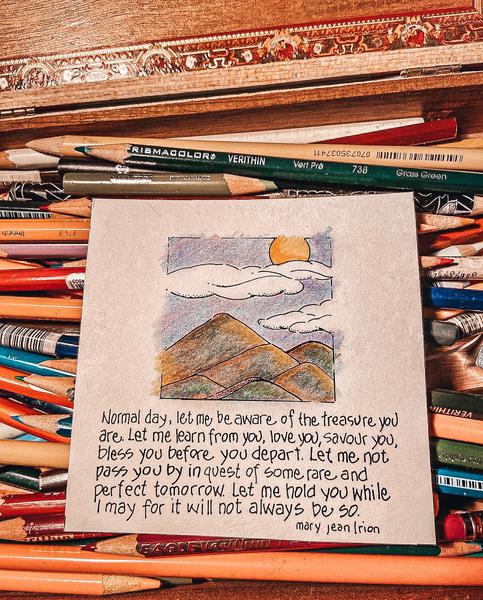 PRISMACOLOR® VERITHIN Vert Pré 738 Grass Green
070735037411
Normal day, let me be aware of the treasure you
are. Let me learn from you, love you, savour you,
bless you before you depart. Let me not
pass you by in quest of some rare and
perfect tomorrow. Let me hold you while
I may for it will not always be so.
mary jean Irion
VERITHIN